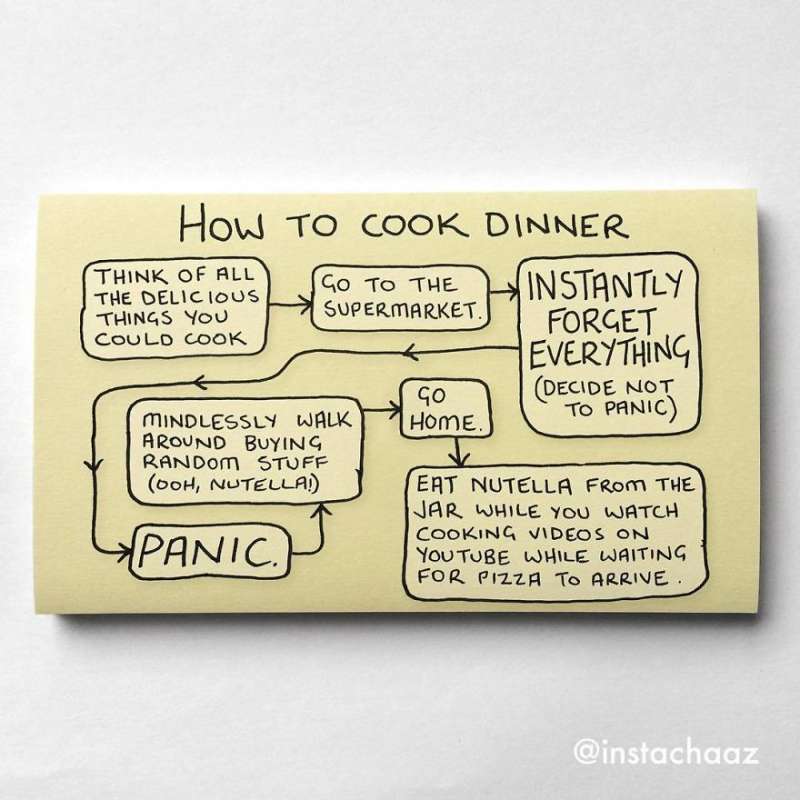 HOW TO COOK DINNER
THINK OF ALL
THE DELICIOUS
THINGS YOU
COULD COOK
GO TO THE
SUPERMARKET.
INSTANTLY
FORGET
EVERYTHING
(DECIDE NOT
TO PANIC)
PANIC.
MINDLESSLY WALK
AROUND BUYING
RANDOM STUFF
(OOH, NUTELLA!)
GO
HOME.
EAT NUTELLA FROM THE
JAR WHILE YOU WATCH
COOKING VIDEOS ON
YOUTUBE WHILE WAITING
FOR PIZZA TO ARRIVE.
@instachaaz